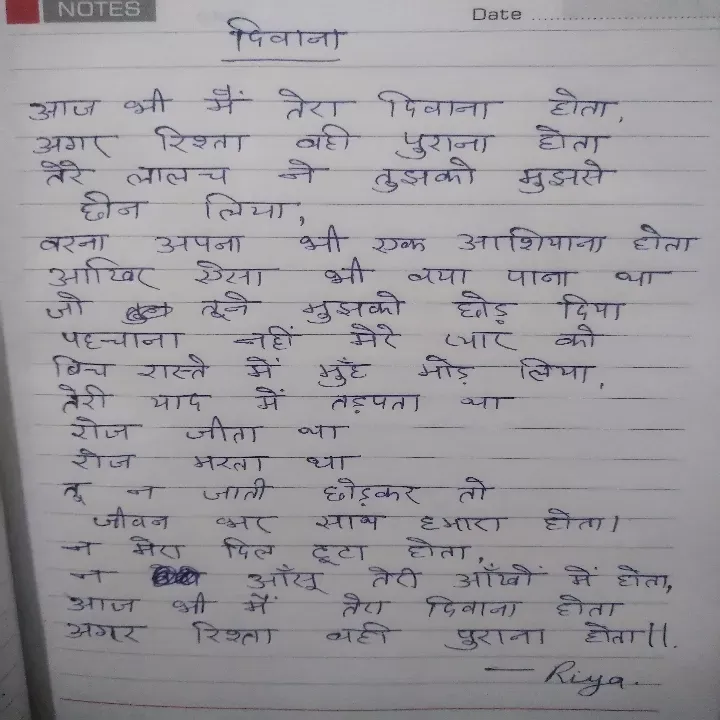 NOTES
Date
दिवाना
आज भी मैं तेरा दिवाना होता,
अगर रिश्ता वही पुराना होता
तेरे लालच ने तुझको मुझसे
छीन लिया,
वरना अपना भी एक आशियाना होता
आखिर ऐसा भी क्या पाना था
जो तूने मुझको छोड़ दिया
पहचाना नहीं मेरे प्यार को
बिच रास्ते में मुँह मोड़ लिया,
तेरी याद में तड़पता था
रोज जीता था
रोज मरता था
तू न जाती छोड़कर तो
जीवन भर साथ हमारा होता।
न मेरा दिल टूटा होता,
न आँसू तेरी आँखों में होता,
आज भी मैं तेरा दिवाना होता
अगर रिश्ता वही पुराना होता।।.
— Riya.